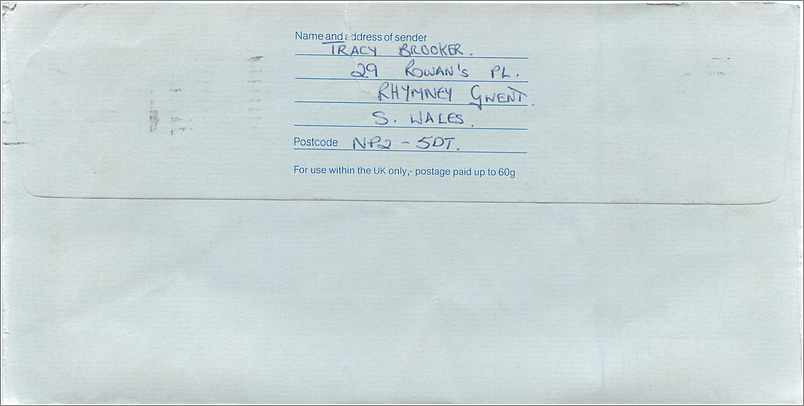 Name and address of sender
TRACY BROOKER.
29 ROWAN'S PL.
RHYMNEY GWENT.
S. WALES.
Postcode NP2 - 5DT.
For use within the UK only,- postage paid up to 60g